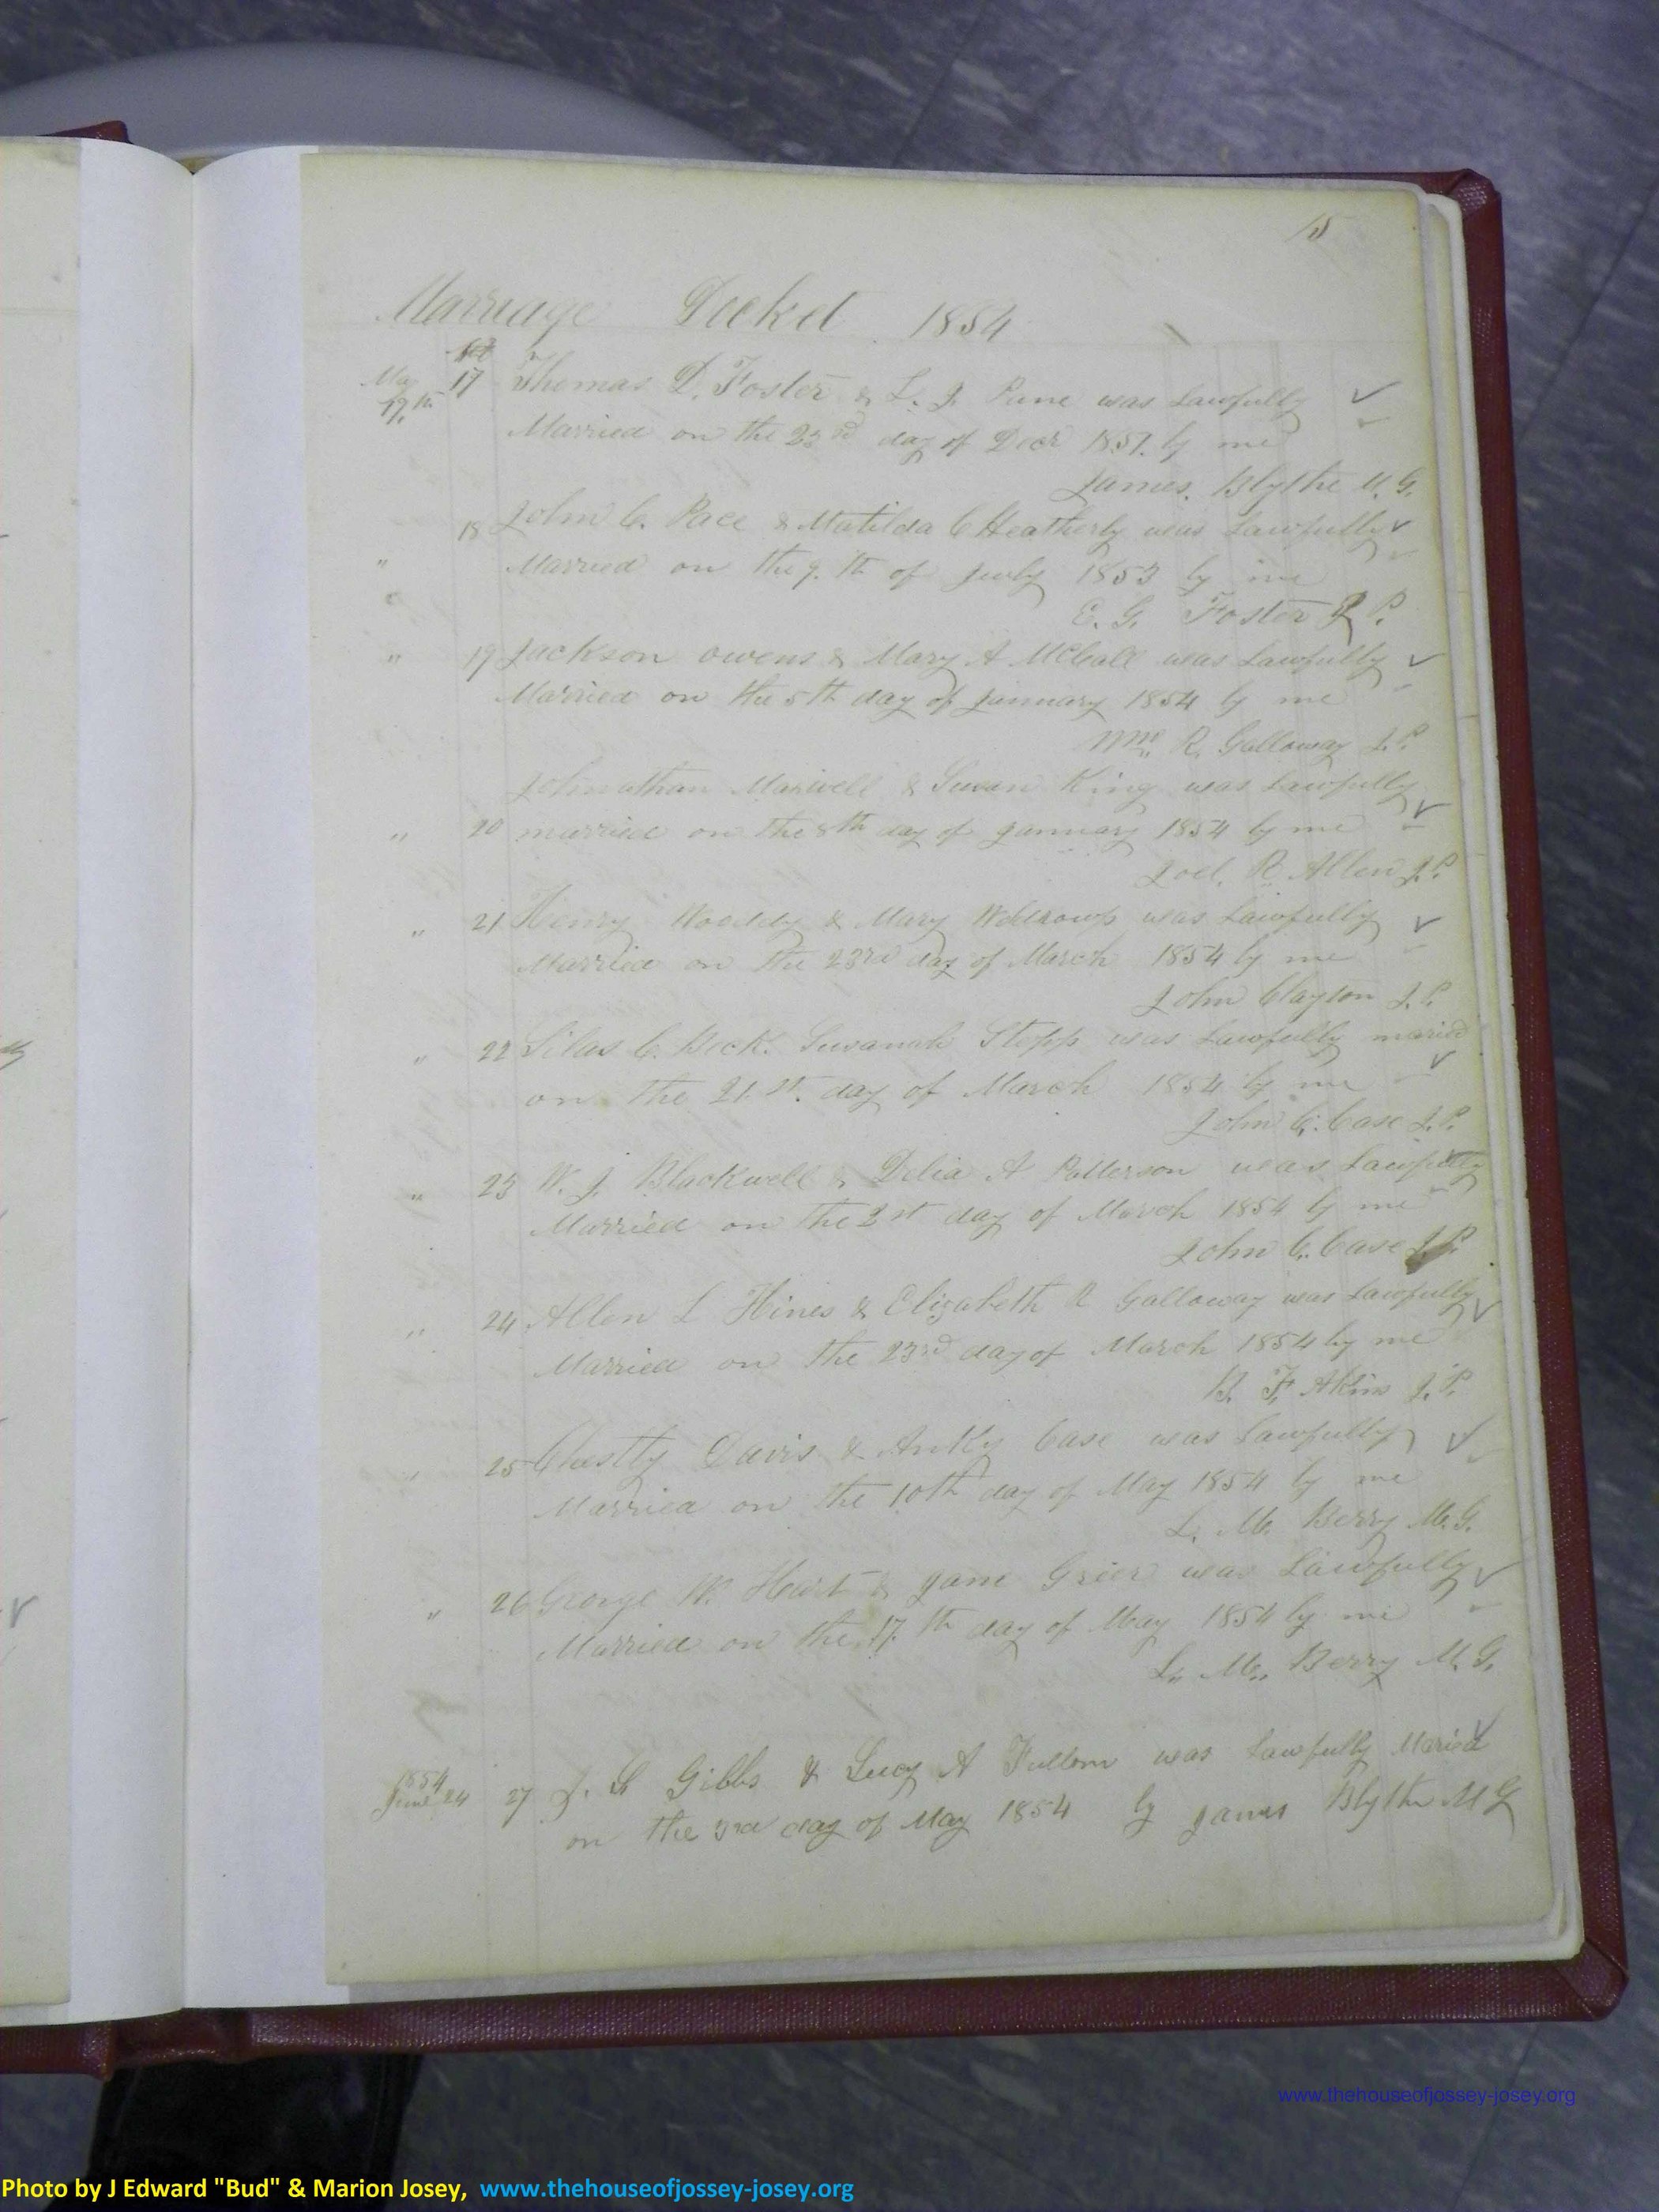 15
Marriage Docket 1854
May 17 Thomas D. Foster & L. J. Pane was Lawfully
19th Married on the 23rd day of Decr 1851 by me
James. Blythe M.G.
18 John C. Pace & Matilda C Heatherly was Lawfully
" Married on the 9.th of July 1853 by me
E. G. Foster J.P.
" 19 Jackson Owens & Mary A McCall was Lawfully
Married on the 5th day of January 1854 by me
Wm. R. Galloway J.P.
Johnathan Maxwell & Susan King was Lawfully
" 20 married on the 8th day of January 1854 by me
Joel. R. Allen J.P.
" 21 Henry & Mary was Lawfully
Married on the 23rd day of March 1854 by me
John Clayton J.P.
" 22 Silas C. Beck. Susanah Stepp was Lawfully maried
on the 21.st. day of March 1854 by me
John C. Case J.P.
" 23 W. J. Blackwell & Delia A Patterson was Lawfully
Married on the 21st day of March 1854 by me
John C. Case J.P.
" 24 Allen L Hines & Elizabeth R Galloway was Lawfully
Married on the 23rd day of March 1854 by me
F. Akins J.P.
" 25 Davis & Case was Lawfully
Married on the 10th day of May 1854 by me
L. M. Berry M.G.
" 26 George W. Hart & Jane Grier was Lawfully
Married on the 17.th day of May 1854 by me
L. M. Berry M.G.
1854
June 24 27 J. Gibbs & Lucy A was Lawfully Maried
on the 3rd day of May 1854 by James Blythe M G
www.thehouseofjossey-josey.org
Photo by J Edward "Bud" & Marion Josey, www.thehouseofjossey-josey.org